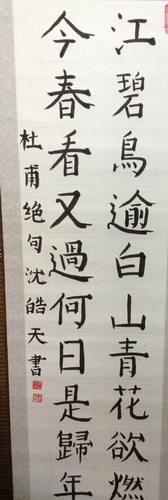 江碧鳥逾白山青花欲燃
今春看又過何日是歸年
杜甫绝句沈皓天書